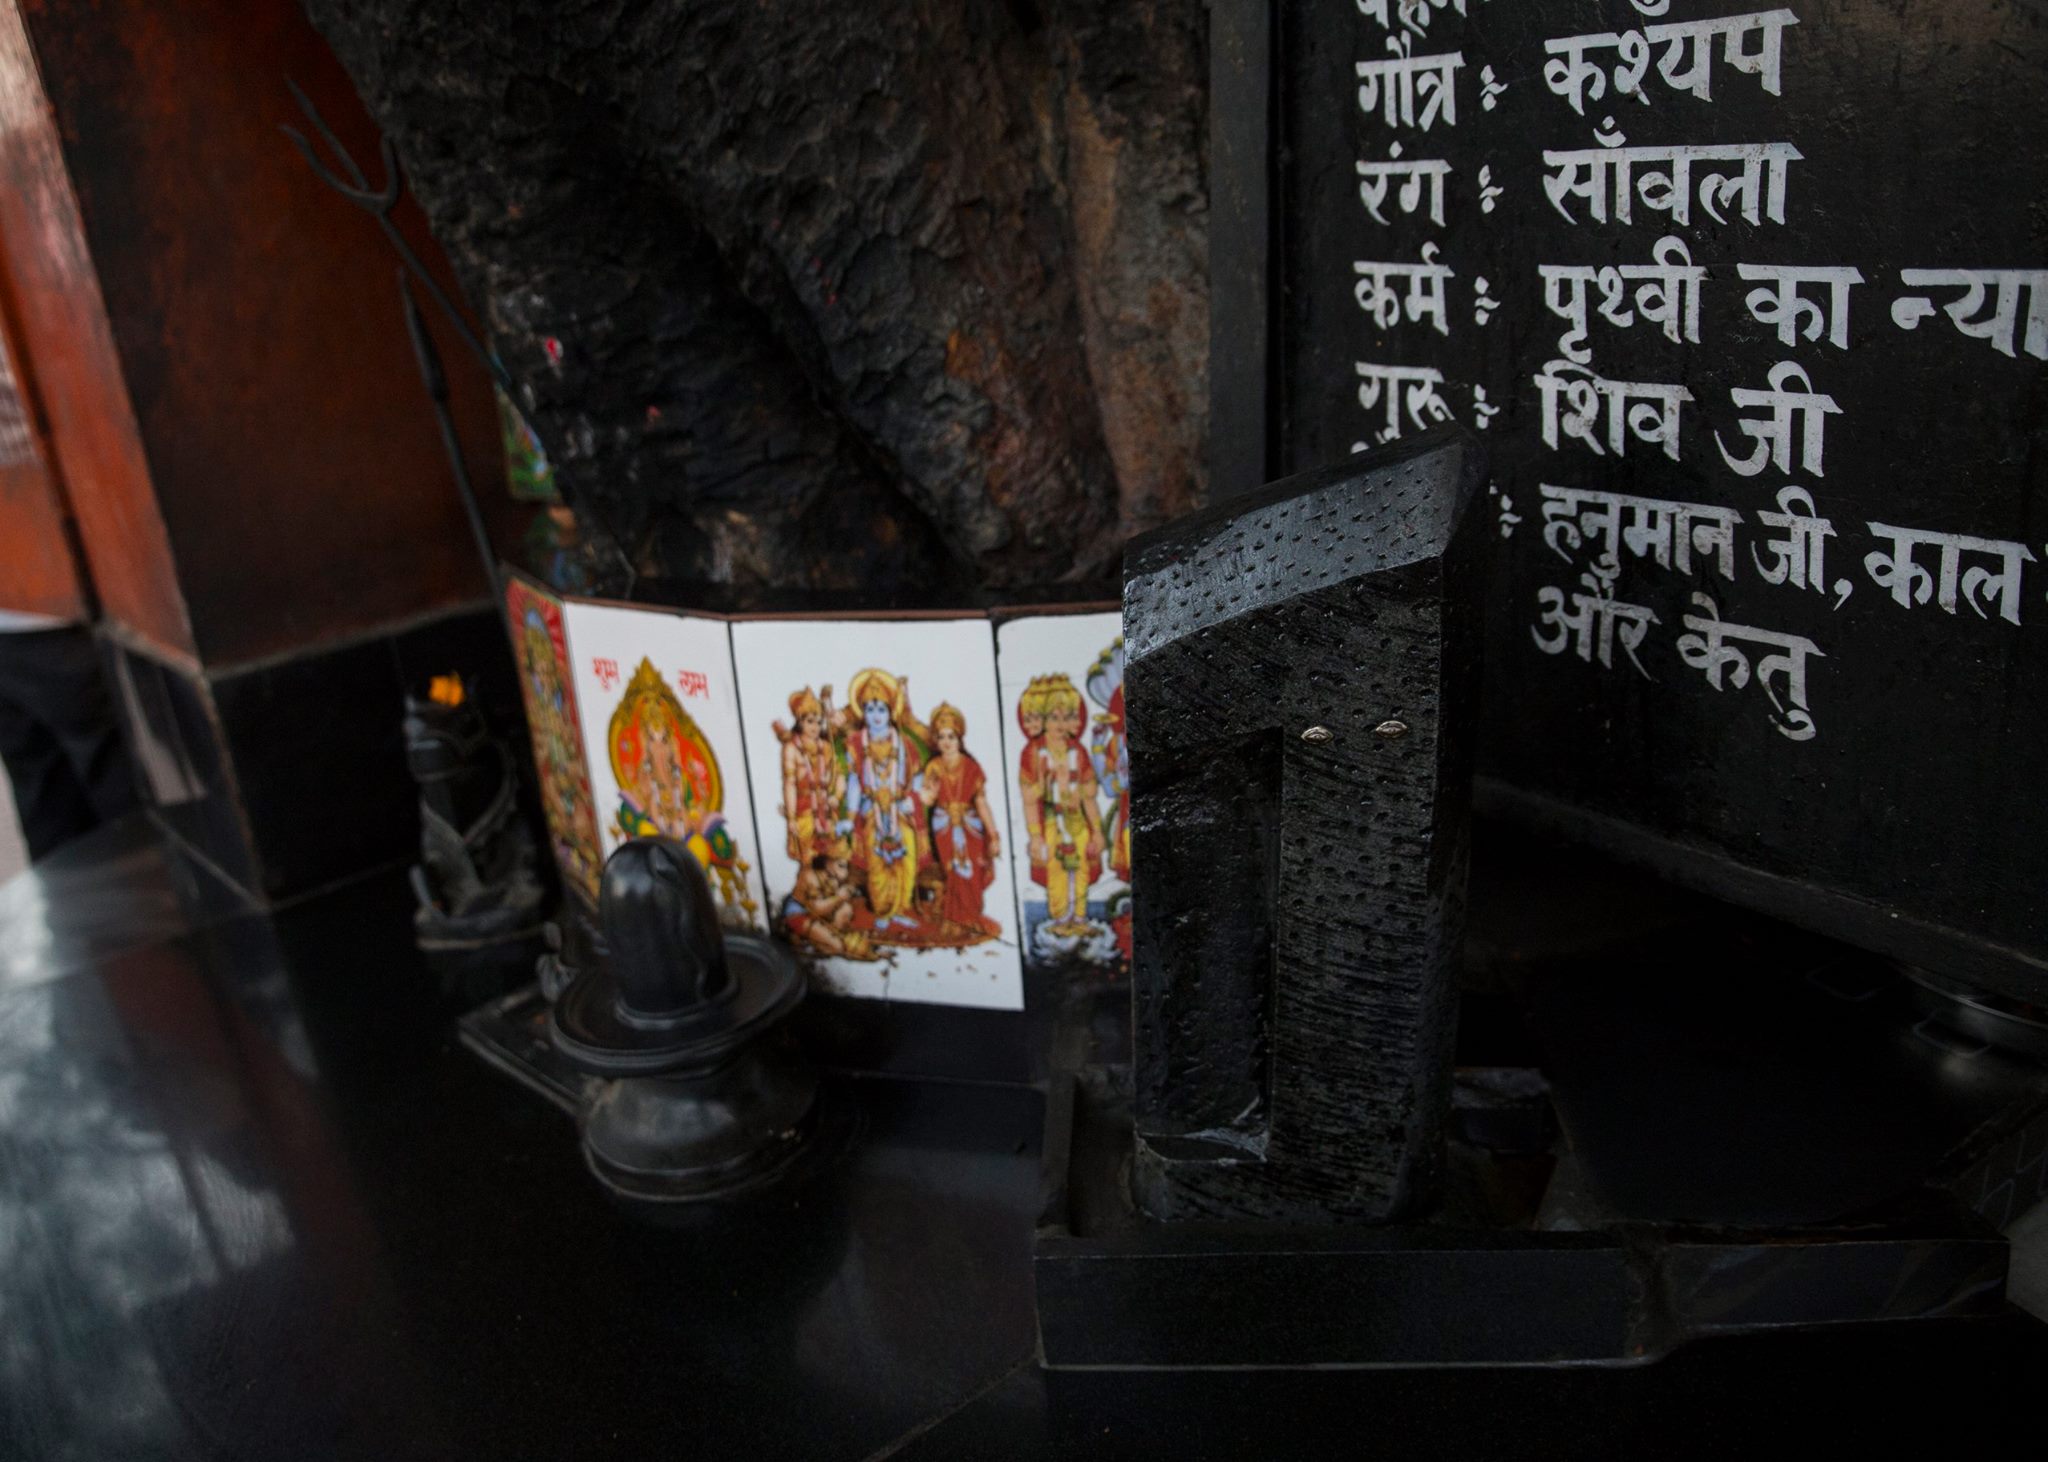 गौत्र : कश्यँप
रंग : साँवला
कर्म : पृथ्वी का
गुरू : शिव जी
: हनुमान जी, काल
और केतु
शुभ लाभ